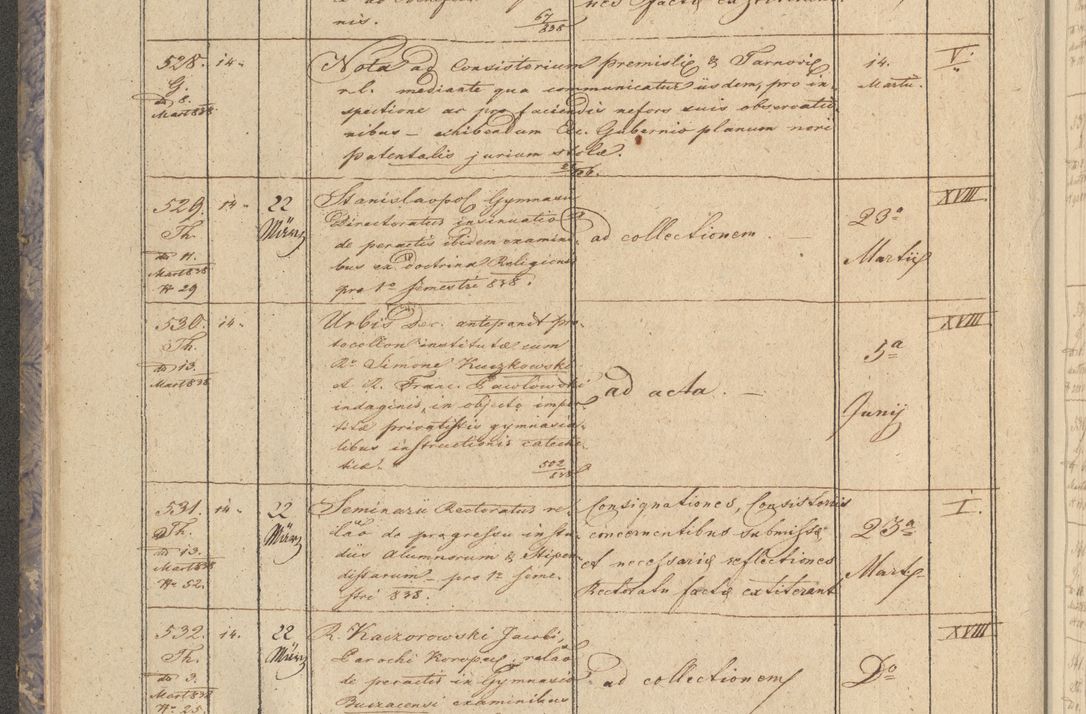 nis. 67/838
528. 14.
G.
dto 8.
Mart 838
Nota ad Consistorium premislie & Tarnovie
r. l. mediante qua communicatur iisdem, pro in-
spectione ac pro faciendis nefors suis observatio-
nibus – exhibendum Exc. Gubernio planum nori
patentalis jurium stolæ.
14.
Martii
V.
529. 14.
Th.
dto 11.
Mart 838
N 29
22
März
Stanislaopol Gymnasii
Directoratus insinuatio
de peractis ibidem exami-
bus ex Doctrina Religionis
pro 1o semestri 838.
ad collectionem. –
23a
Martii
XVIII
530. 14.
Th.
dto 13.
Mart 838
Urbis Dec. antepandit pro-
tocollon institutæ cum
Ro Simone Kuczkowski
et R. Franc. Pawlowski
indaginis, in objecto imper-
titæ privatistis gymnasia-
libus instructionis cateche-
ticæ. 502/838
ad acta. –
5a
Junij
XVIII
531. 14.
Th.
dto 13.
Mart 838
No 52.
22
März
Seminarii Rectoratus re-
lão de progressu in stu-
diis Alumnorum & Stipen-
distarum – pro 1o Seme-
stri 838.
Consignationes, Consistoriis
concernentibus submissæ
et necessariæ reflectiones
Rectoratu factæ extiterant
23a
Martii
I.
532. 14.
Th.
dto 3.
Mart 838
No 25.
22
März
R. Kaczorowski Jacobi,
Parochi Koropec, relão
de peractis in Gymnasio
Buczacensi examinibus
ad collectionem
Do
XVIII